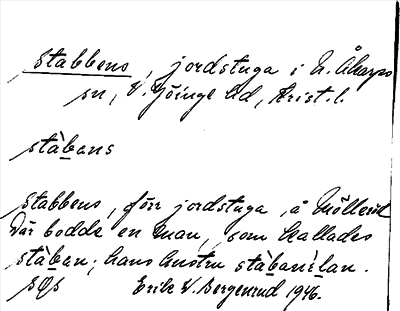 stabbens, jordstuga i N. Åkarps
sn, V. Göinge hd, Krist. l.
stàbans
stabbens, förr jordstuga, å Mölleröd
Där bodde en man, som kallades
stàban; hans hustru stàbanìlan.
Erik V. Bergenrud 1946.